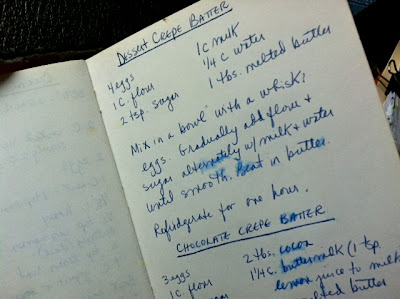 DESSERT CREPE BATTER
4 eggs 1 C milk
1 C. flour 1/4 C water
2 tsp. sugar 1 tbs. melted butter
Mix in a bowl with a whisk;
eggs. Gradually add flour &
sugar alternately w/ milk & water
until smooth. Beat in butter.
Refridgerate for one hour.
CHOCOLATE CREPE BATTER
3 eggs 2 tbs. cocoa
1 C. flour 1 1/4 C. buttermilk (1 tsp.
sugar lemon juice to milk
melted butter